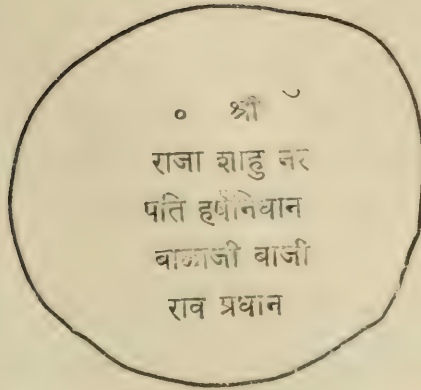 ० श्री ˘
राजा शाहु नर
पति हर्षनिधान
बाळाजी बाजी
राव प्रधान